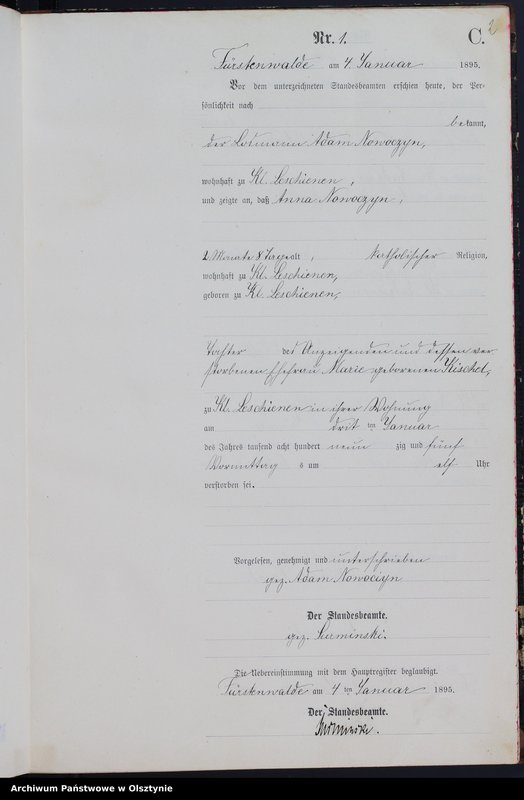 Nr. 1.
C.
2
Fürstenwalde am 4. Januar 1895.
Vor dem unterzeichneten Standesbeamten erschien heute, der Per-
sönlichkeit nach
bekannt,
der Losmann Adam Nowoczyn,
wohnhaft zu Kl. Leschienen,
und zeigte an, daß Anna Nowoczyn,
2 Monate 8 Tage alt, katholischer Religion,
wohnhaft zu Kl. Leschienen,
geboren zu Kl. Leschienen,
Tochter des Anzeigenden und dessen ver
storbenen Ehefrau Marie geborenen Kischel,
zu Kl. Leschienen in ihrer Wohnung
am drit ten Januar
des Jahres tausend acht hundert neun zig und fünf
Vormittag s um elf Uhr
verstorben sei.
Vorgelesen, genehmigt und unterschrieben
gez. Adam Nowociyn
Der Standesbeamte.
gez.
Die Uebereinstimmung mit dem Hauptregister beglaubigt.
Fürstenwalde am 4 ten Januar 1895.
Der Standesbeamte.
Archiwum Państwowe w Olsztynie